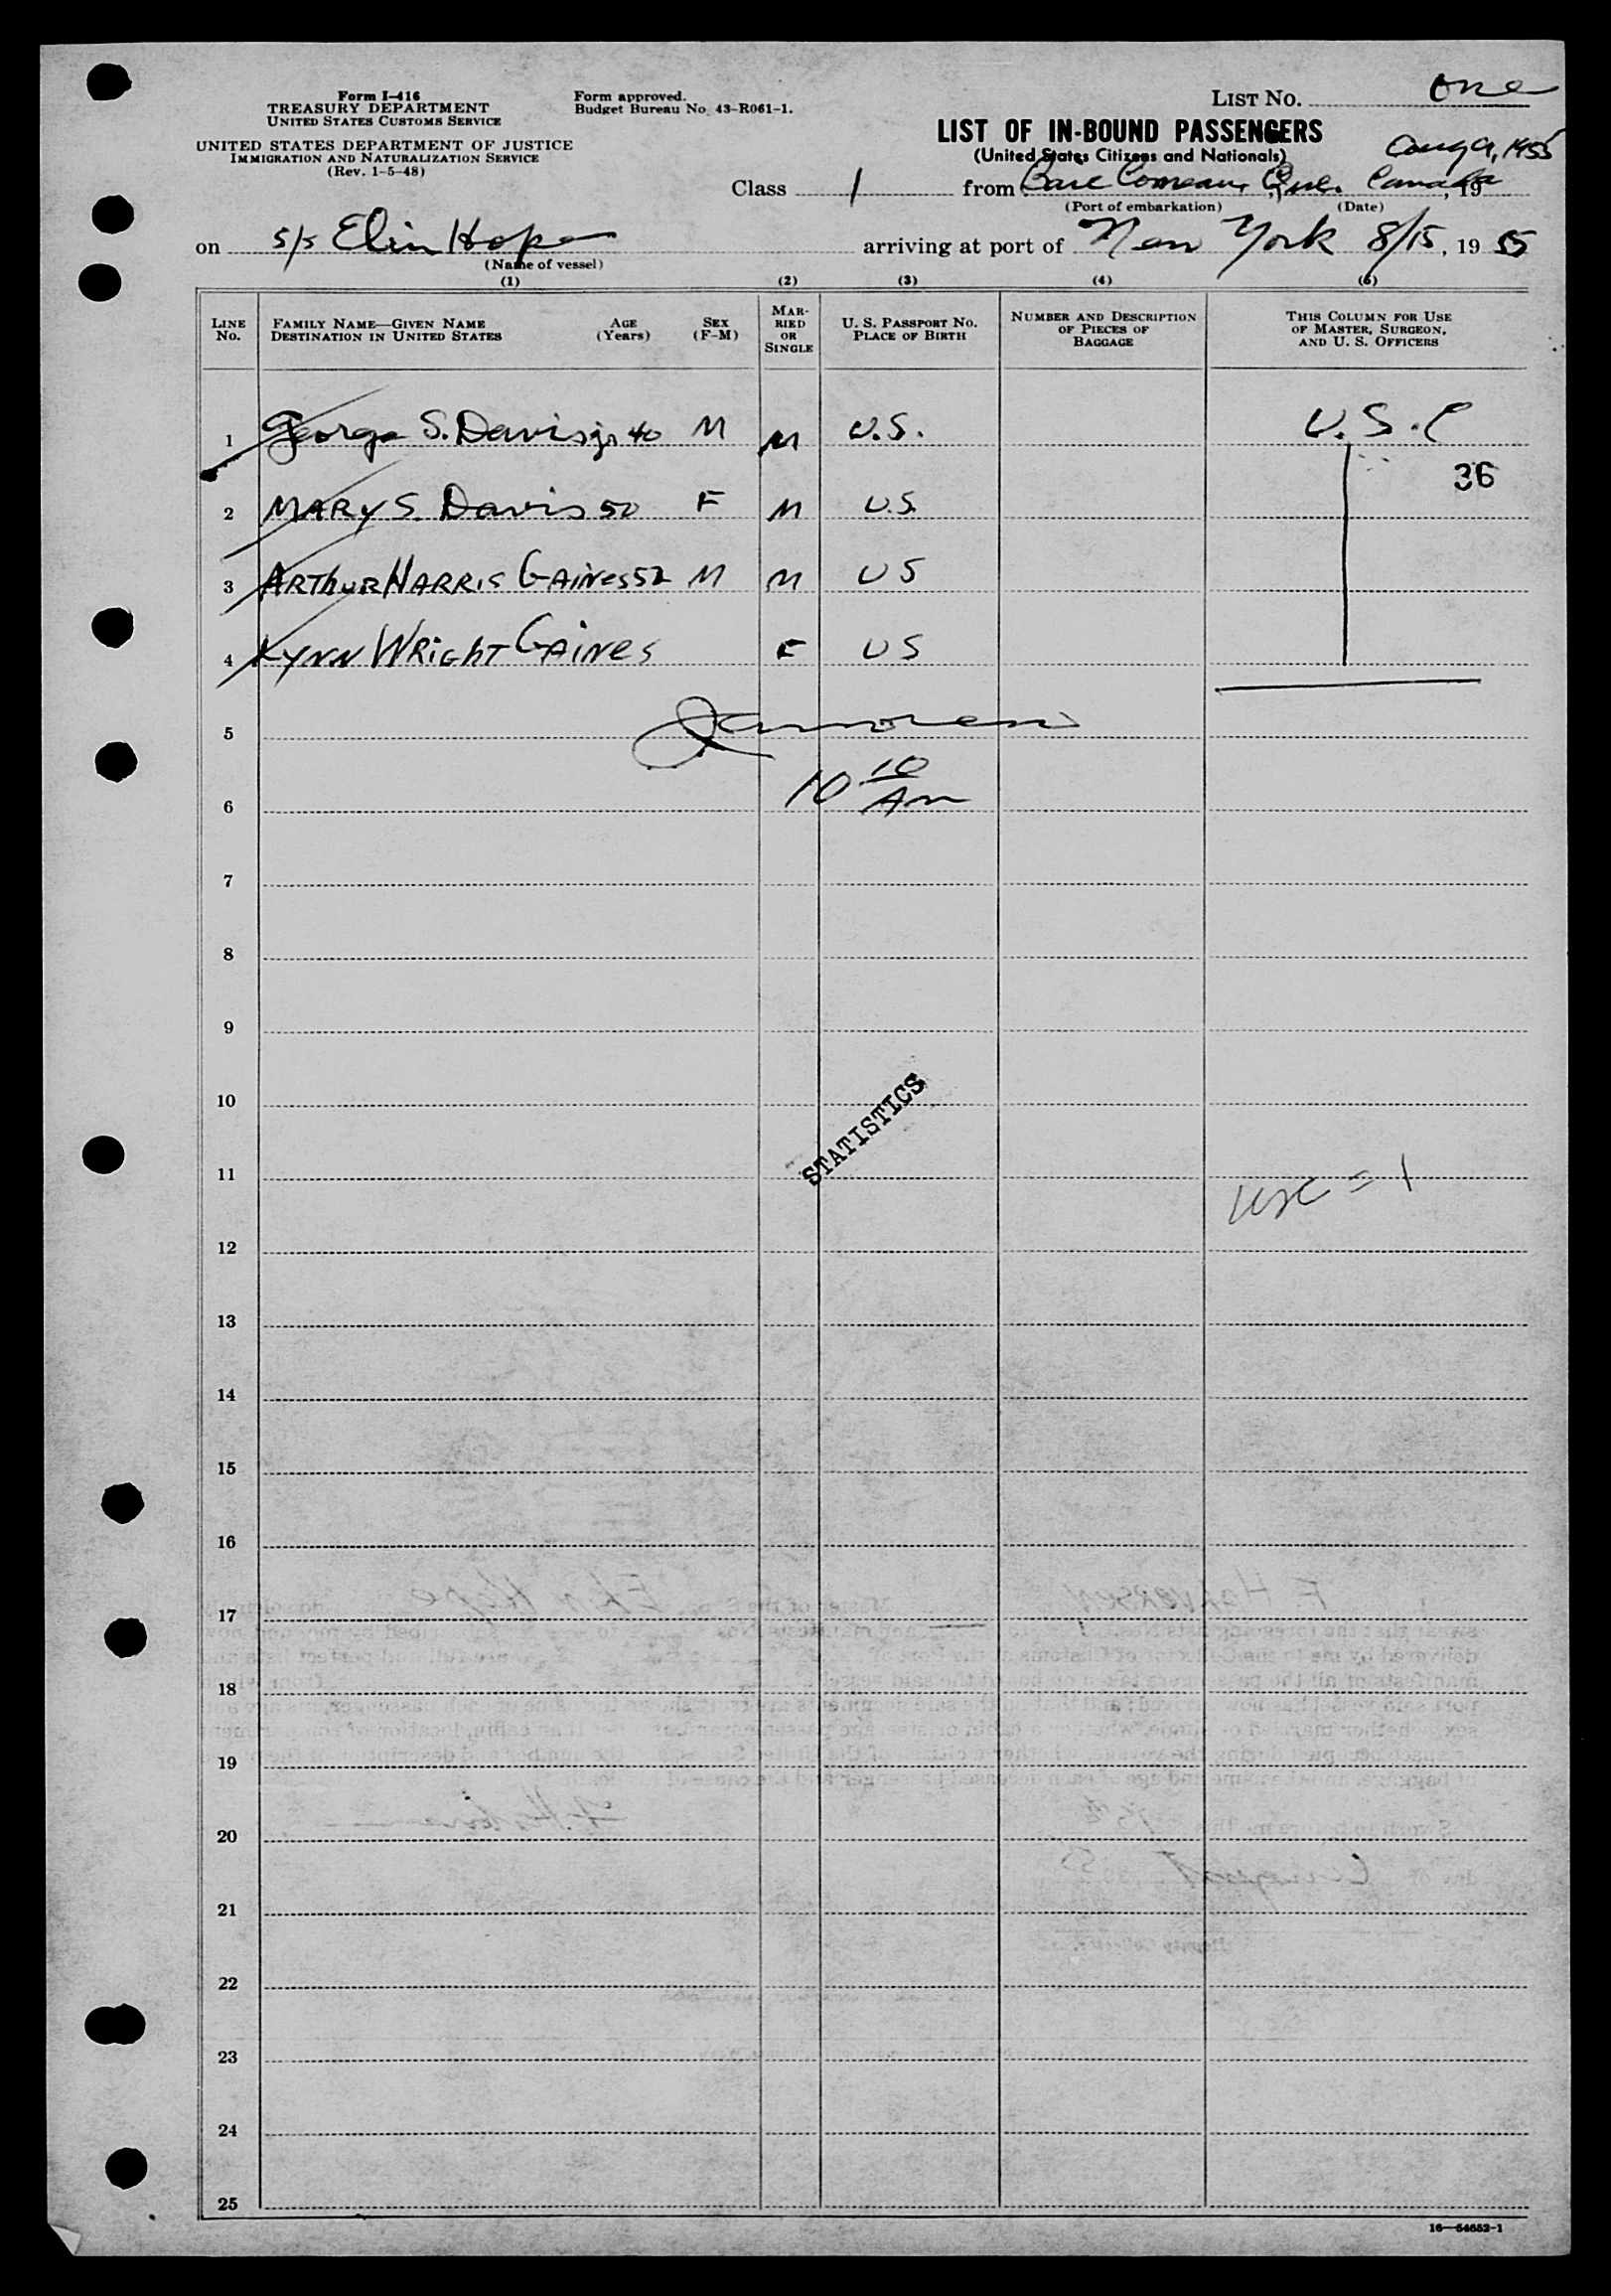 Form I-416
TREASURY DEPARTMENT
UNITED STATES CUSTOMS SERVICE
UNITED STATES DEPARTMENT OF JUSTICE
IMMIGRATION AND NATURALIZATION SERVICE
(Rev. 1-5-48)
Form approved.
Budget Bureau No. 43-R061-1.
LIST No. One
LIST OF IN-BOUND PASSENGERS
(United States Citizens and Nationals)
Aug 9, 1955
Class 1 from Baie Comeau, Que. Canada, 19
(Port of embarkation) (Date)
on S/S Elin Hope arriving at port of New York 8/15, 19 55
(Name of vessel)
(1) (2) (3) (4) (6)
LINE No. FAMILY NAME—GIVEN NAME DESTINATION IN UNITED STATES AGE (Years) SEX (F-M) MARRIED OR SINGLE U. S. PASSPORT No. PLACE OF BIRTH NUMBER AND DESCRIPTION OF PIECES OF BAGGAGE THIS COLUMN FOR USE OF MASTER, SURGEON, AND U. S. OFFICERS
1 George S. Davis jr 40 M M U.S. U.S.C
36
2 MARY S. Davis 50 F M U.S.
3 ARThUR HARRIS GAiNes 52 M M US
4 LYNN WRighT GAiNes F US
5
6 10 10 Am
7
8
9
10
STATISTICS
11 usc = 1
12
13
14
15
16
17
18
19
20
21
22
23
24
25
16—54652-1